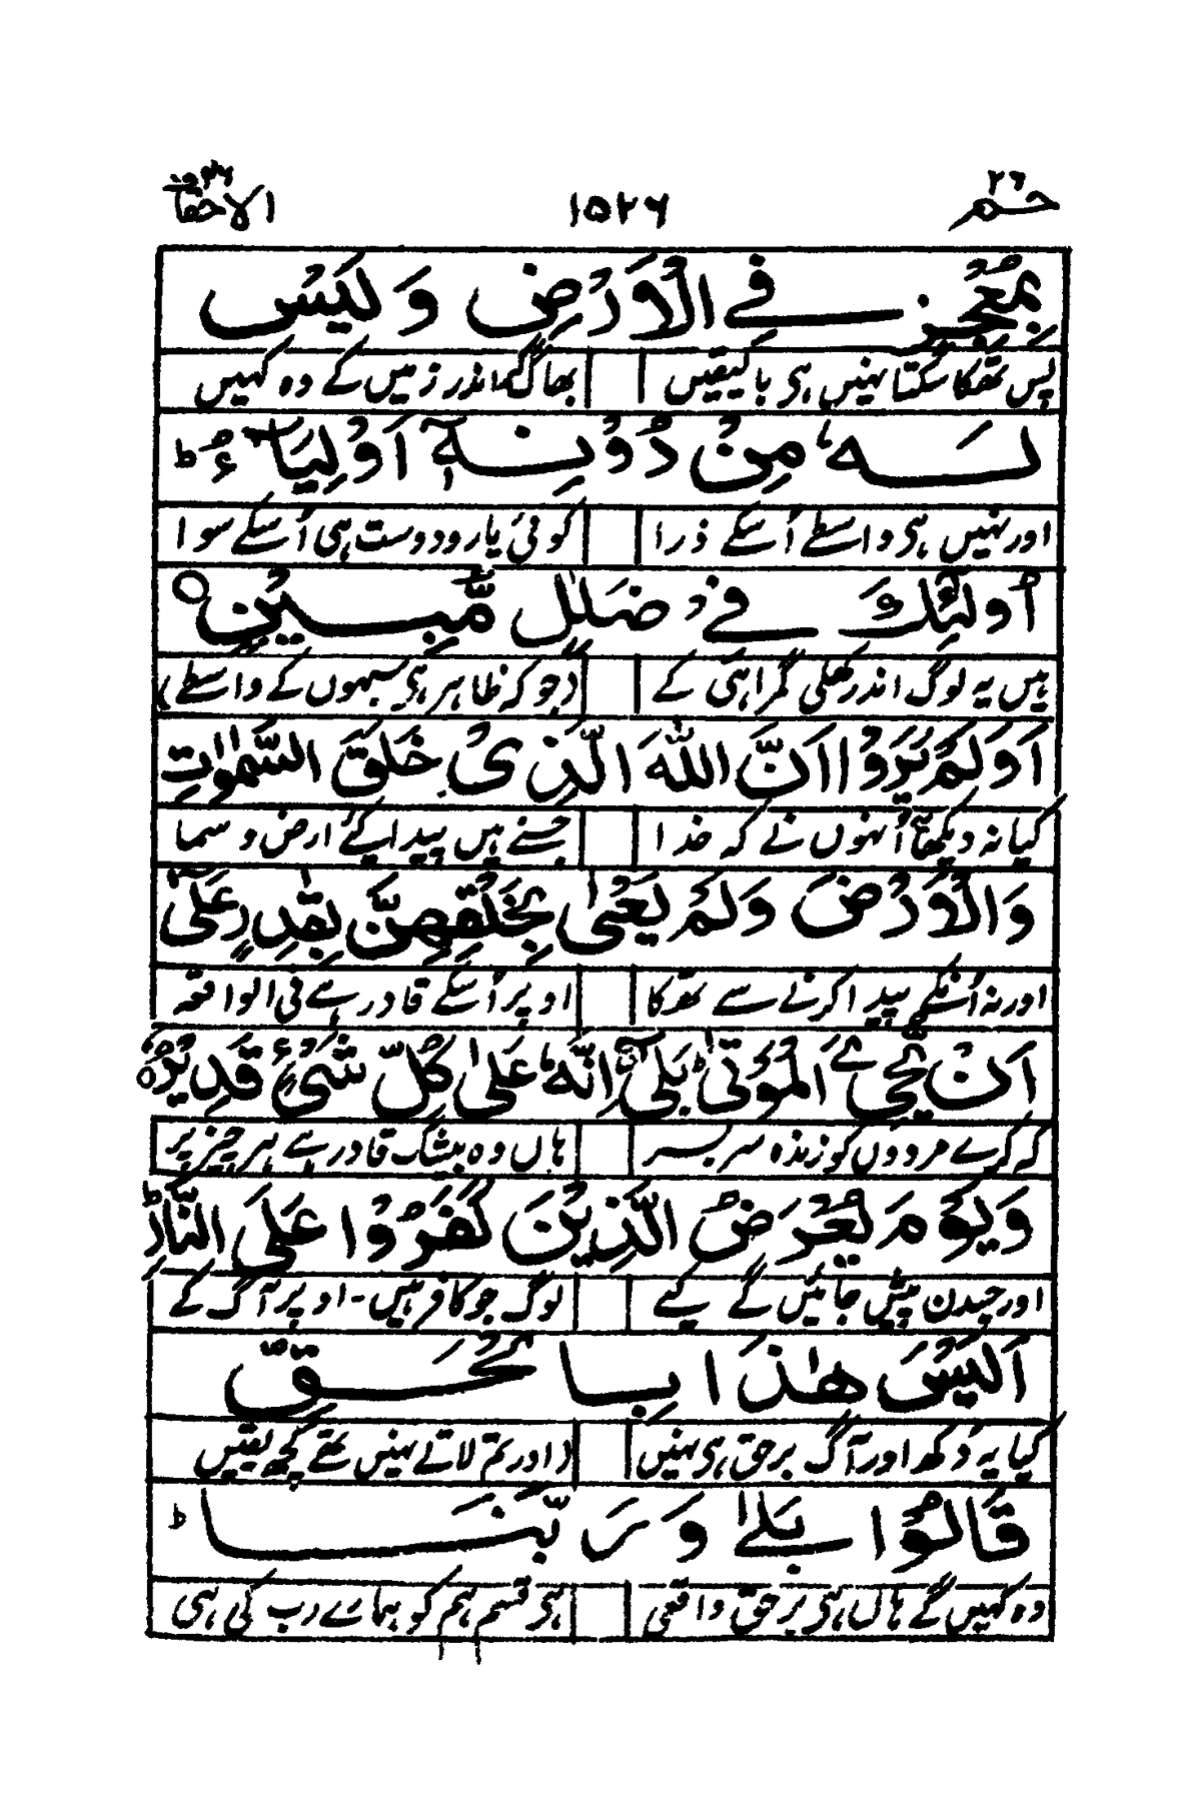 حٰم ٢٦ ١٥٢٦ الاحقاف
بِمُعْجِزٍ فِي الْاَرْضِ وَ لَيْسَ
پس تھکا سکتا نہیں ہی بالیقیں بھاگ کر اندر زمیں کے وہ کہیں
لَهٗ مِنْ دُوْنِهٖۤ اَوْلِيَآءُ ؕ
اور نہیں ہی واسطے اُسکے ذرا کوئی یار و دوست ہی اُسکے سوا
اُولٰٓئِكَ فِيْ ضَلٰلٍ مُّبِيْنٍ ○
ہیں یہ لوگ اندر کھلی گمراہی کے (جو کہ ظاہر ہی سبہوں کے واسطے)
اَوَلَمْ يَرَوْا اَنَّ اللّٰهَ الَّذِيْ خَلَقَ السَّمٰوٰتِ
کیا نہ دیکھا اُنہوں نے کہ خدا جسنے ہیں پیدا کئے ارض و سما
وَالْاَرْضَ وَلَمْ يَعْيَ بِخَلْقِهِنَّ بِقٰدِرٍ عَلٰۤى
اور نہ اُنکے پیدا کرنے سے تھکا اوپر اُسکے قادر ہے فی الواقعہ
اَنْ يُّحْيِۦَ الْمَوْتٰى ؕ بَلٰۤى اِنَّهٗ عَلٰى كُلِّ شَيْءٍ قَدِيْرٌ ○
کہ کرے مردوں کو زندہ سر بسر ہاں وہ بیشک قادر ہے ہر چیز پر
وَيَوْمَ يُعْرَضُ الَّذِيْنَ كَفَرُوْا عَلَى النَّارِ ؕ
اور جسدن پیش جائیں گے کیے لوگ جو کافر ہیں - اوپر آگ کے
اَلَيْسَ هٰذَا بِالْحَقِّ
کیا یہ دُکھ اور آگ برحق ہی نہیں (اور تم لاتے نہیں تھے کچھ یقیں
قَالُوْا بَلٰى وَ رَبِّنَا ؕ
وہ کہیں گے ہاں ہی برحق واقعی ہی قسم ہم کو ہمارے رب کی ہی